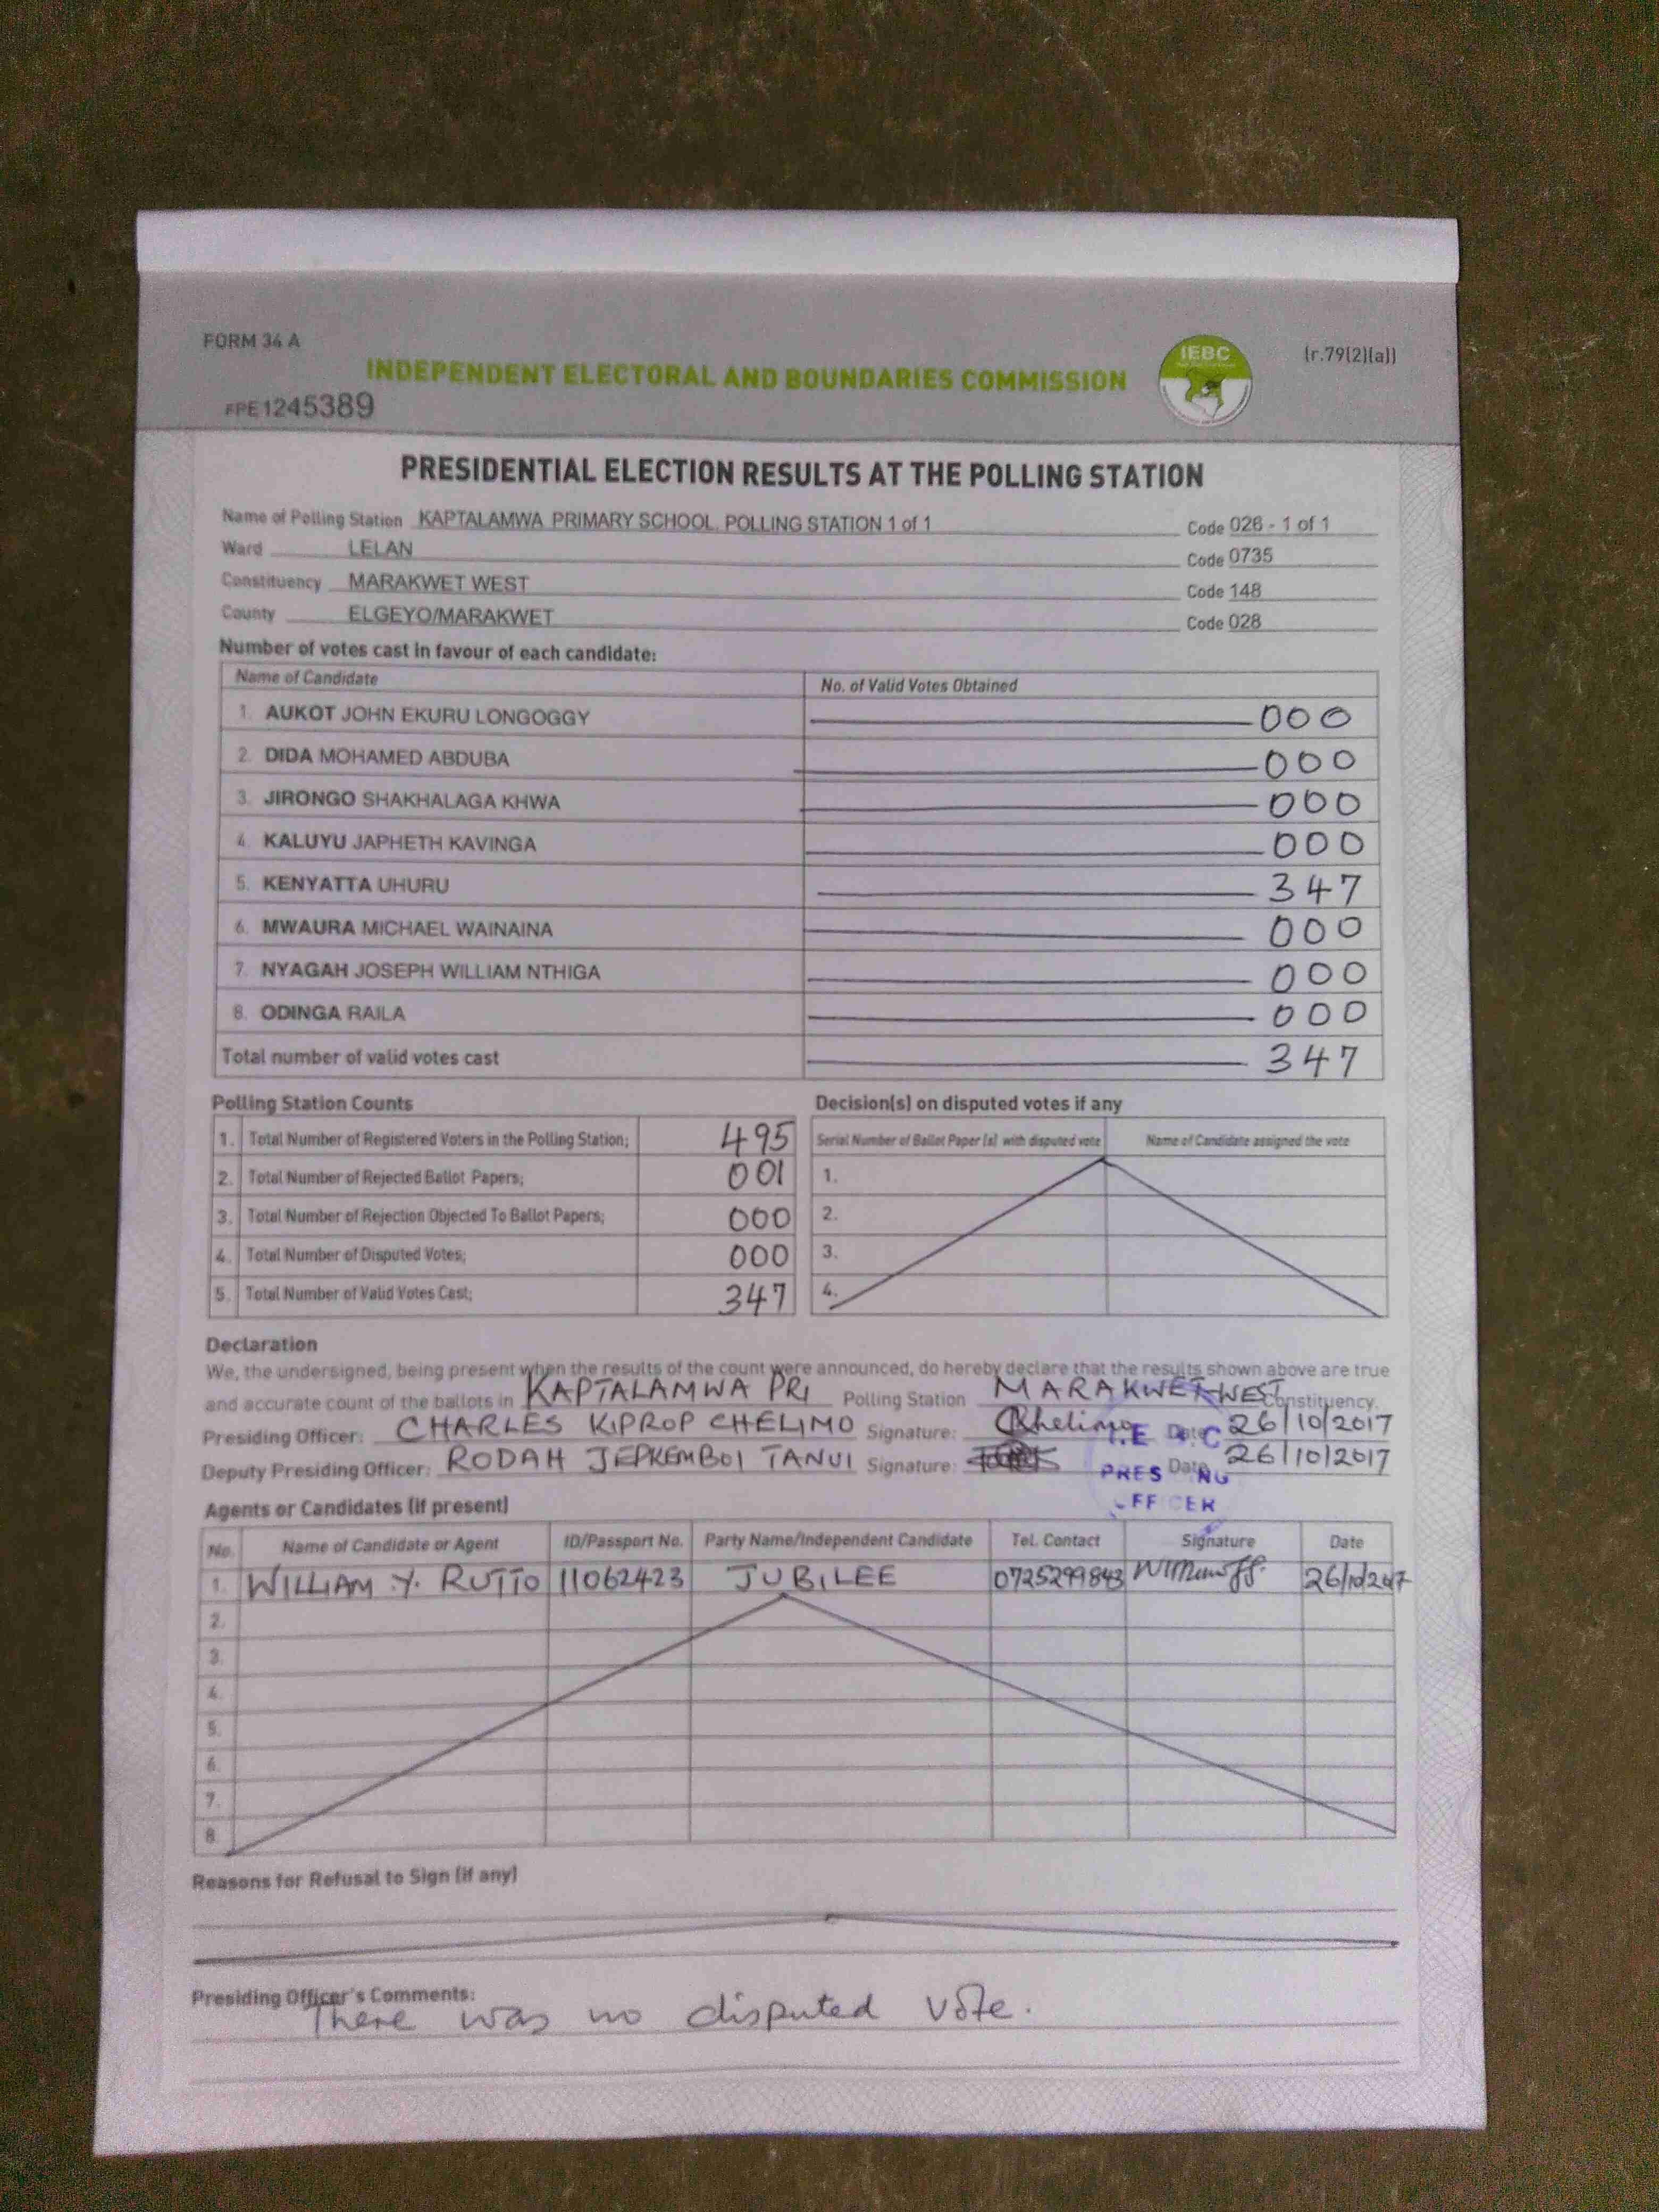 FORM 34 A
(r.79(2)(a))
IEBC
INDEPENDENT ELECTORAL AND BOUNDARIES COMMISSION
FPE1245389
PRESIDENTIAL ELECTION RESULTS AT THE POLLING STATION
Name of Polling Station KAPTALAMWA PRIMARY SCHOOL POLLING STATION 1 of 1 Code 026 - 1 of 1
Ward LELAN Code 0735
Constituency MARAKWET WEST Code 148
County ELGEYO/MARAKWET Code 028
Number of votes cast in favour of each candidate:
Name of Candidate No. of Valid Votes Obtained
1. AUKOT JOHN EKURU LONGOGGY 000
2. DIDA MOHAMED ABDUBA 000
3. JIRONGO SHAKHALAGA KHWA 000
4. KALUYU JAPHETH KAVINGA 000
5. KENYATTA UHURU 347
6. MWAURA MICHAEL WAINAINA 000
7. NYAGAH JOSEPH WILLIAM NTHIGA 000
8. ODINGA RAILA 000
Total number of valid votes cast 347
Polling Station Counts
1. Total Number of Registered Voters in the Polling Station; 495
2. Total Number of Rejected Ballot Papers; 001
3. Total Number of Rejection Objected To Ballot Papers; 000
4. Total Number of Disputed Votes; 000
5. Total Number of Valid Votes Cast; 347
Decision(s) on disputed votes if any
Serial Number of Ballot Paper (s) with disputed vote Name of Candidate assigned the vote
1.
2.
3.
4.
Declaration
We, the undersigned, being present when the results of the count were announced, do hereby declare that the results shown above are true
and accurate count of the ballots in KAPTALAMWA PRI Polling Station MARAKWET WEST Constituency.
Presiding Officer: CHARLES KIPROP CHELIMO Signature: Chelimo Date 26/10/2017
Deputy Presiding Officer: RODAH JEPKEMBOI TANUI Signature: Date 26/10/2017
Agents or Candidates (if present)
No. Name of Candidate or Agent ID/Passport No. Party Name/Independent Candidate Tel. Contact Signature Date
1. WILLIAM Y. RUTTO 11062423 JUBILEE 0725299843 26/10/2017
2.
3.
4.
5.
6.
7.
8.
Reasons for Refusal to Sign (if any)
Presiding Officer's Comments:
There was no disputed vote.